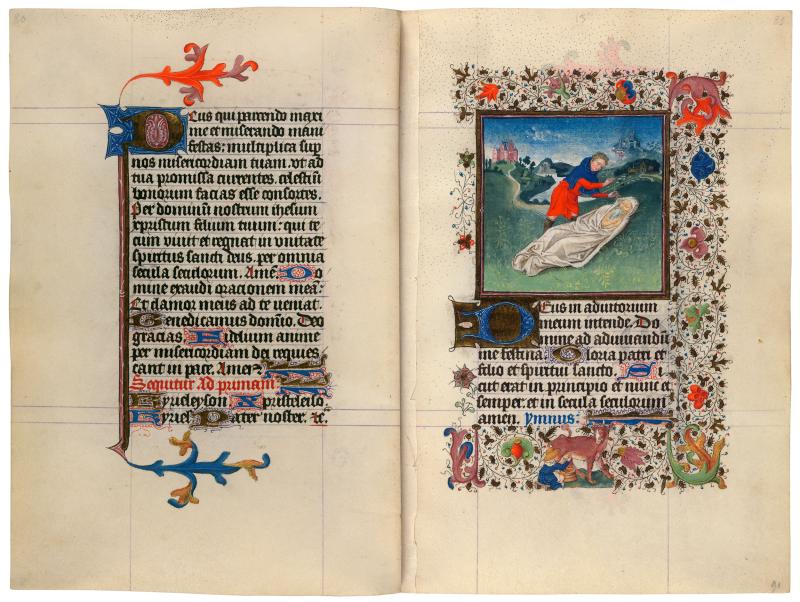 Deus qui parcendo maxi
me et miserando mani
festas: multiplica sup
nos misericordiam tuam. ut ad
tua promissa currentes. celestiũ
bonorum facias esse consortes.
Per dominũ nostrum ihesum
xpristum filium tuum: qui te
cum vivit et regnat in unitate
spiritus sancti deus. per omnia
secula seculorum. Amẽ. Do
mine exaudi oracionem meã:
Et clamor meus ad te veniat.
Benedicamus domĩo. Deo
gracias Fidelium anime
per misericordiam dei requies
cant in pace. Amen
Sequitur Ad primam
Kyrieleyson Xpristeleiso
Kyriel Pater noster. &c.
Deus in adiutorium
meum intende. Do
mine ad adiuvandũ
me festina. Gloria patri et
filio et spiritui sancto. Si
cut erat in principio et nunc et
semper: et in secula seculorum
amen. Ymnus: